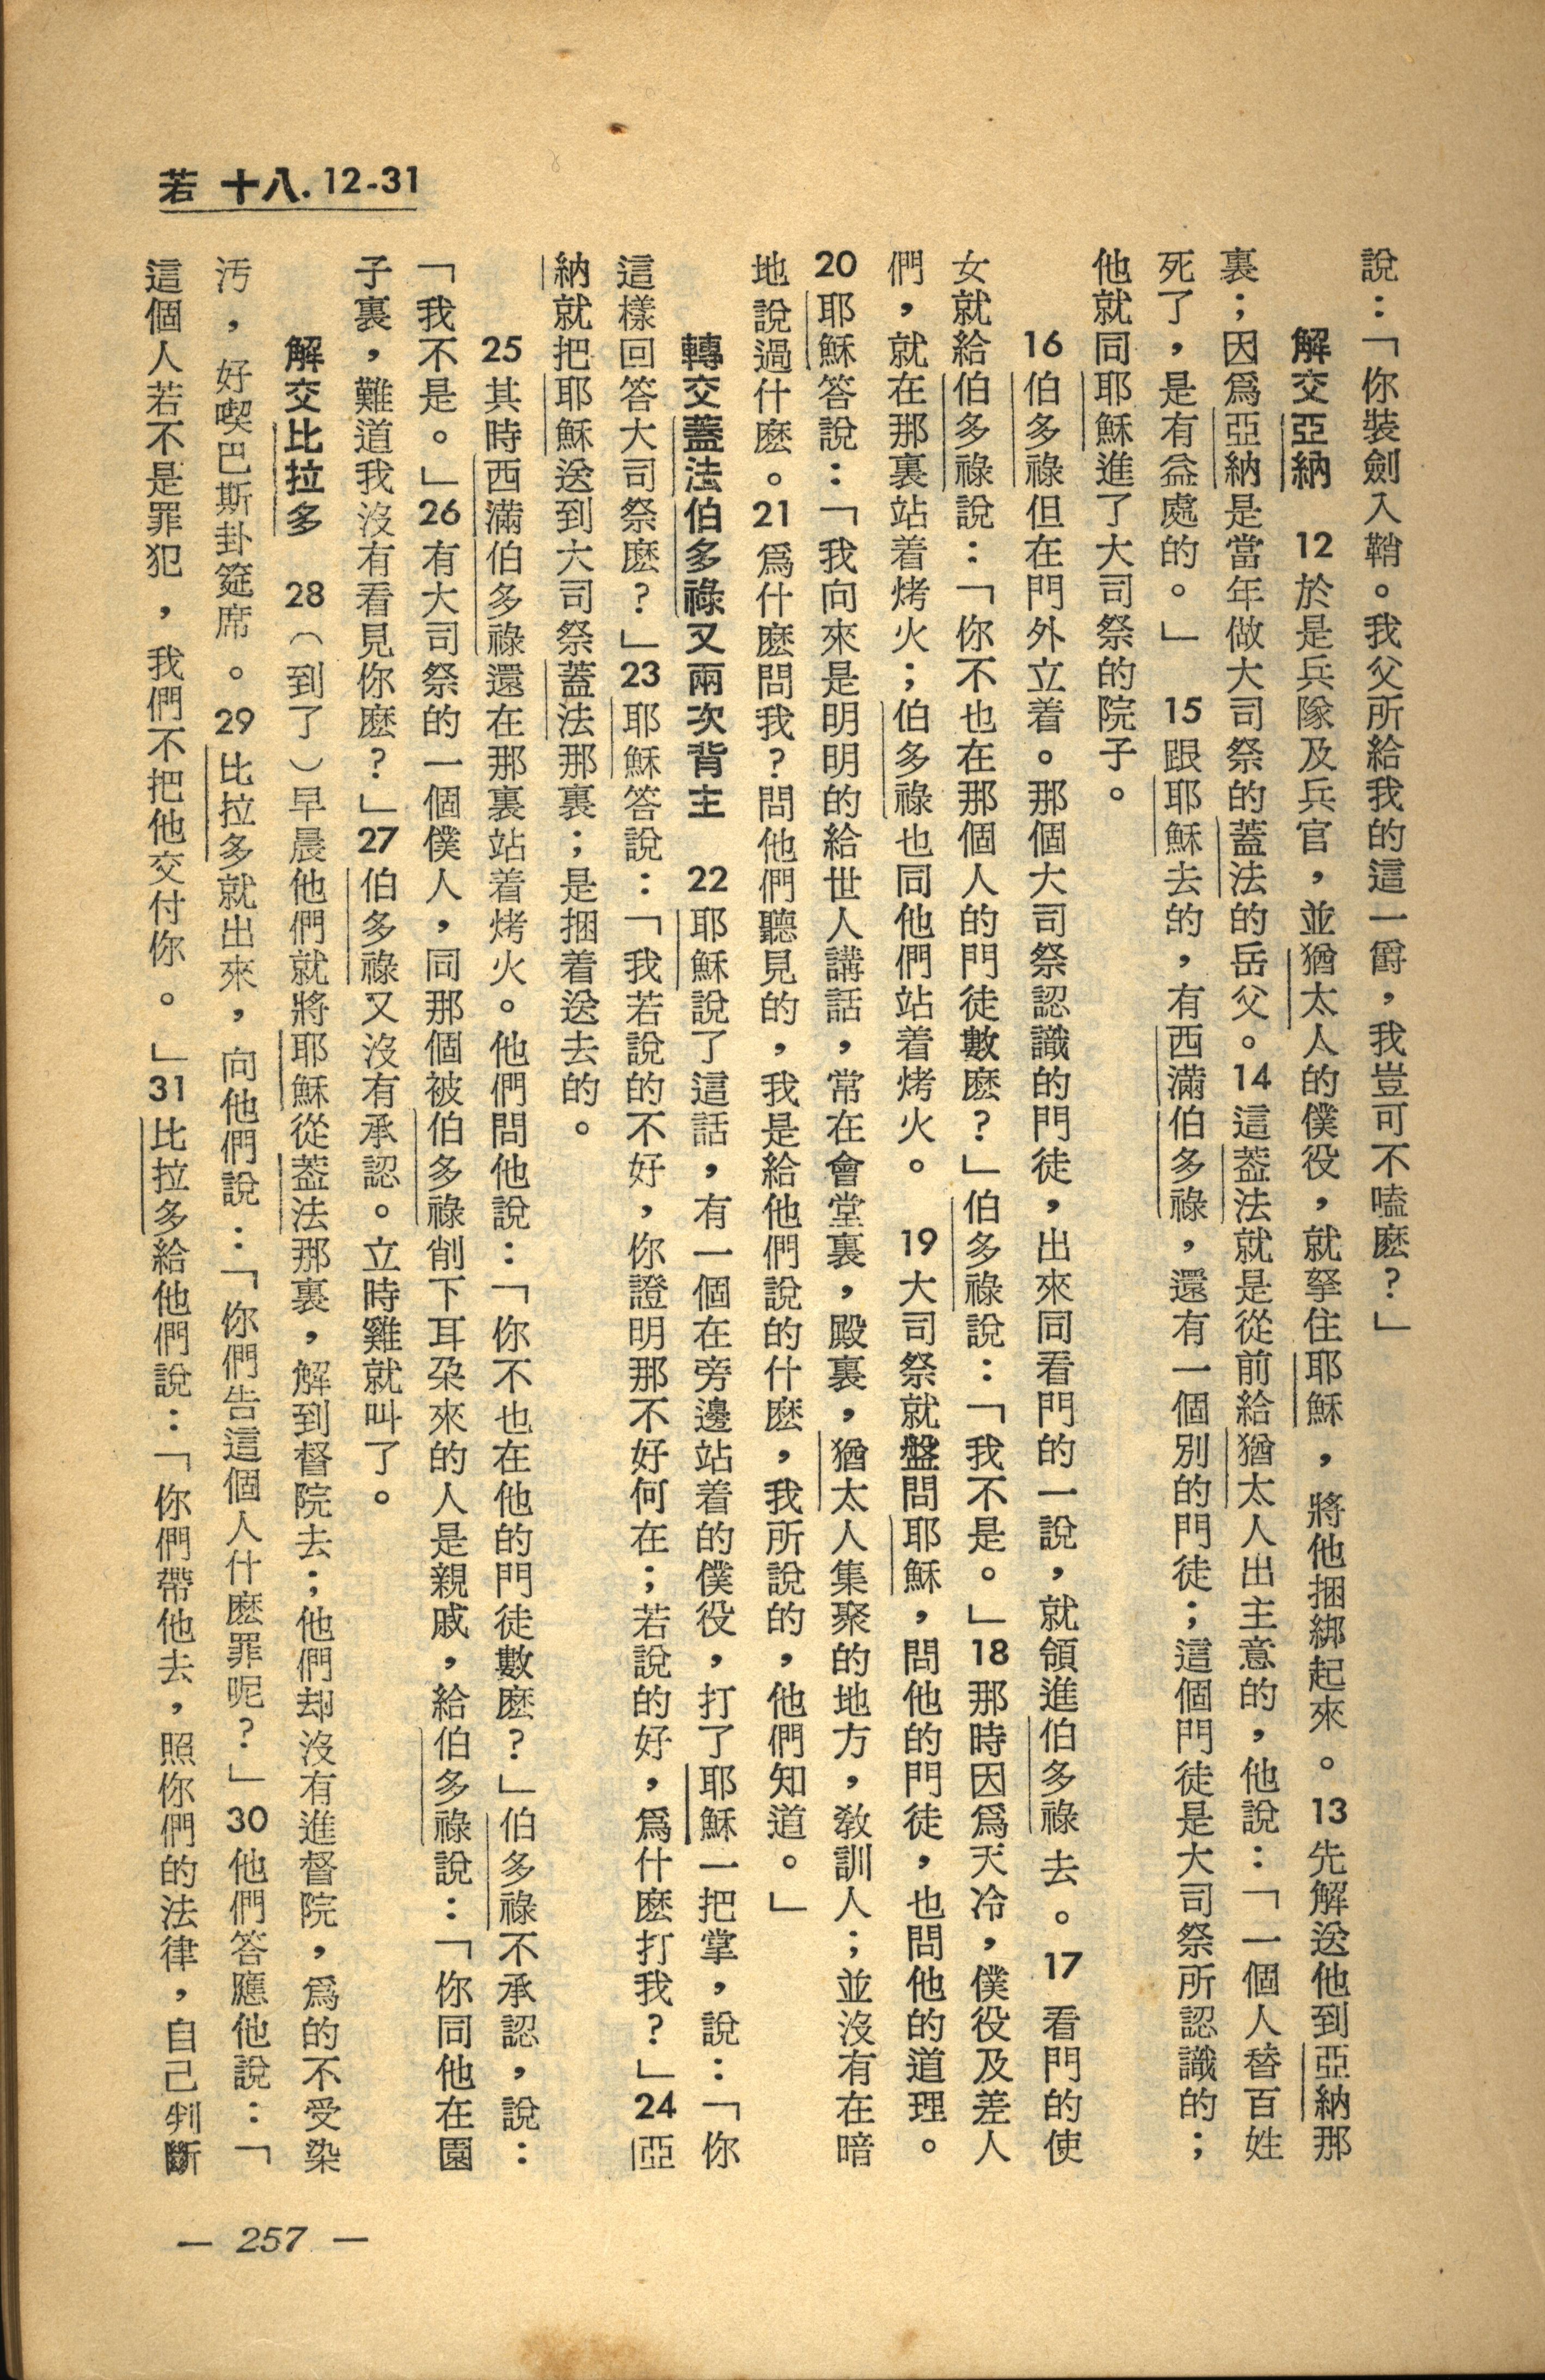 若 十八. 12-31
說：「你裝劍入鞘。我父所給我的這一爵，我豈可不嗑麽？」
解交亞納　12 於是兵隊及兵官，並猶太人的僕役，就拏住耶穌，將他捆綁起來。13 先解送他到亞納那
裏；因爲亞納是當年做大司祭的蓋法的岳父。14 這蓋法就是從前給猶太人出主意的，他說：「一個人替百姓
死了，是有益處的。」　15 跟耶穌去的，有西滿伯多祿，還有一個別的門徒；這個門徒是大司祭所認識的；
他就同耶穌進了大司祭的院子。
16 伯多祿但在門外立着。那個大司祭認識的門徒，出來同看門的一說，就領進伯多祿去。17 看門的使
女就給伯多祿說：「你不也在那個人的門徒數麽？」伯多祿說：「我不是。」18 那時因爲天冷，僕役及差人
們，就在那裏站着烤火；伯多祿也同他們站着烤火。　19 大司祭就盤問耶穌，問他的門徒，也問他的道理。
20 耶穌答說：「我向來是明明的給世人講話，常在會堂裏，殿裏，猶太人集聚的地方，敎訓人；並沒有在暗
地說過什麽。21 爲什麽問我？問他們聽見的，我是給他們說的什麽，我所說的，他們知道。」
轉交蓋法伯多祿又兩次背主　22 耶穌說了這話，有一個在旁邊站着的僕役，打了耶穌一把掌，說：「你
這樣回答大司祭麽？」23 耶穌答說：「我若說的不好，你證明那不好何在；若說的好，爲什麽打我？」24 亞
納就把耶穌送到大司祭蓋法那裏；是捆着送去的。
25 其時西滿伯多祿還在那裏站着烤火。他們問他說：「你不也在他的門徒數麽？」伯多祿不承認，說：
「我不是。」26 有大司祭的一個僕人，同那個被伯多祿削下耳朶來的人是親戚，給伯多祿說：「你同他在園
子裏，難道我沒有看見你麽？」27 伯多祿又沒有承認。立時雞就叫了。
解交比拉多　28（到了）早晨他們就將耶穌從蓋法那裏，解到督院去；他們却沒有進督院，爲的不受染
汚，好喫巴斯卦筵席。29 比拉多就出來，向他們說：「你們告這個人什麽罪呢？」30 他們答應他說：「
這個人若不是罪犯，我們不把他交付你。」31 比拉多給他們說：「你們帶他去，照你們的法律，自己判斷
— 257 —